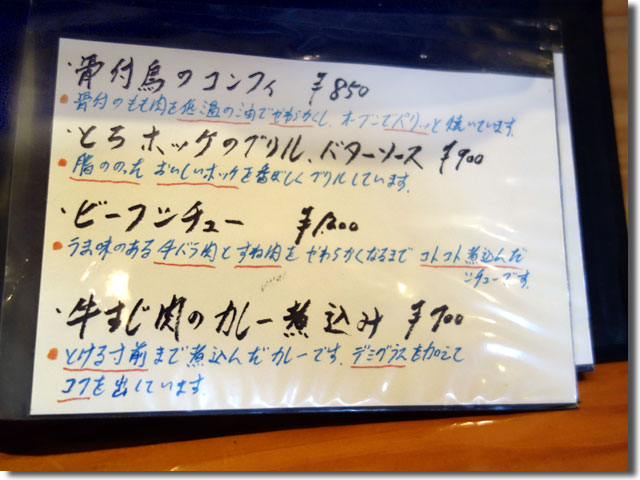 ・骨付鳥のコンフィ ¥850
・骨付のもも肉を低温の油でやわらかくし、オーブンでパリッと焼いています。
・とろホッケのグリル、バターソース ¥900
・脂ののった おいしいホッケを香ばしくグリルしています。
・ビーフシチュー ¥1,200
・うま味のある牛バラ肉とすね肉を やわらかくなるまで コトコト煮込んだ
シチューです。
・牛すじ肉のカレー煮込み ¥700
・とける寸前まで煮込んだカレーです。デミグラスを加えて
コクを出しています。